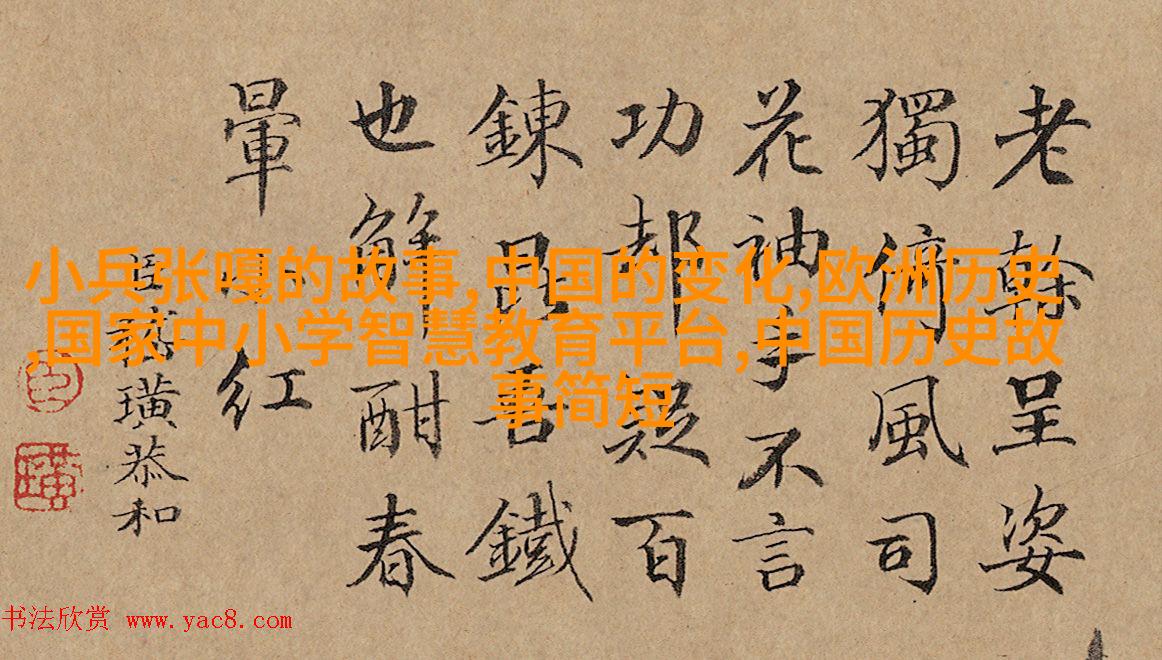 老榦呈姿
獨俯風司
花神手不言
功却疑百
鍊昆吾鐵
也解酣春
暈紅
臣嵇璜恭和
小兵张嘎的故事,中国的变化,欧洲历史
,国家中小学智慧教育平台,中国历史故
事简短
书法欣赏 www.yac8.com